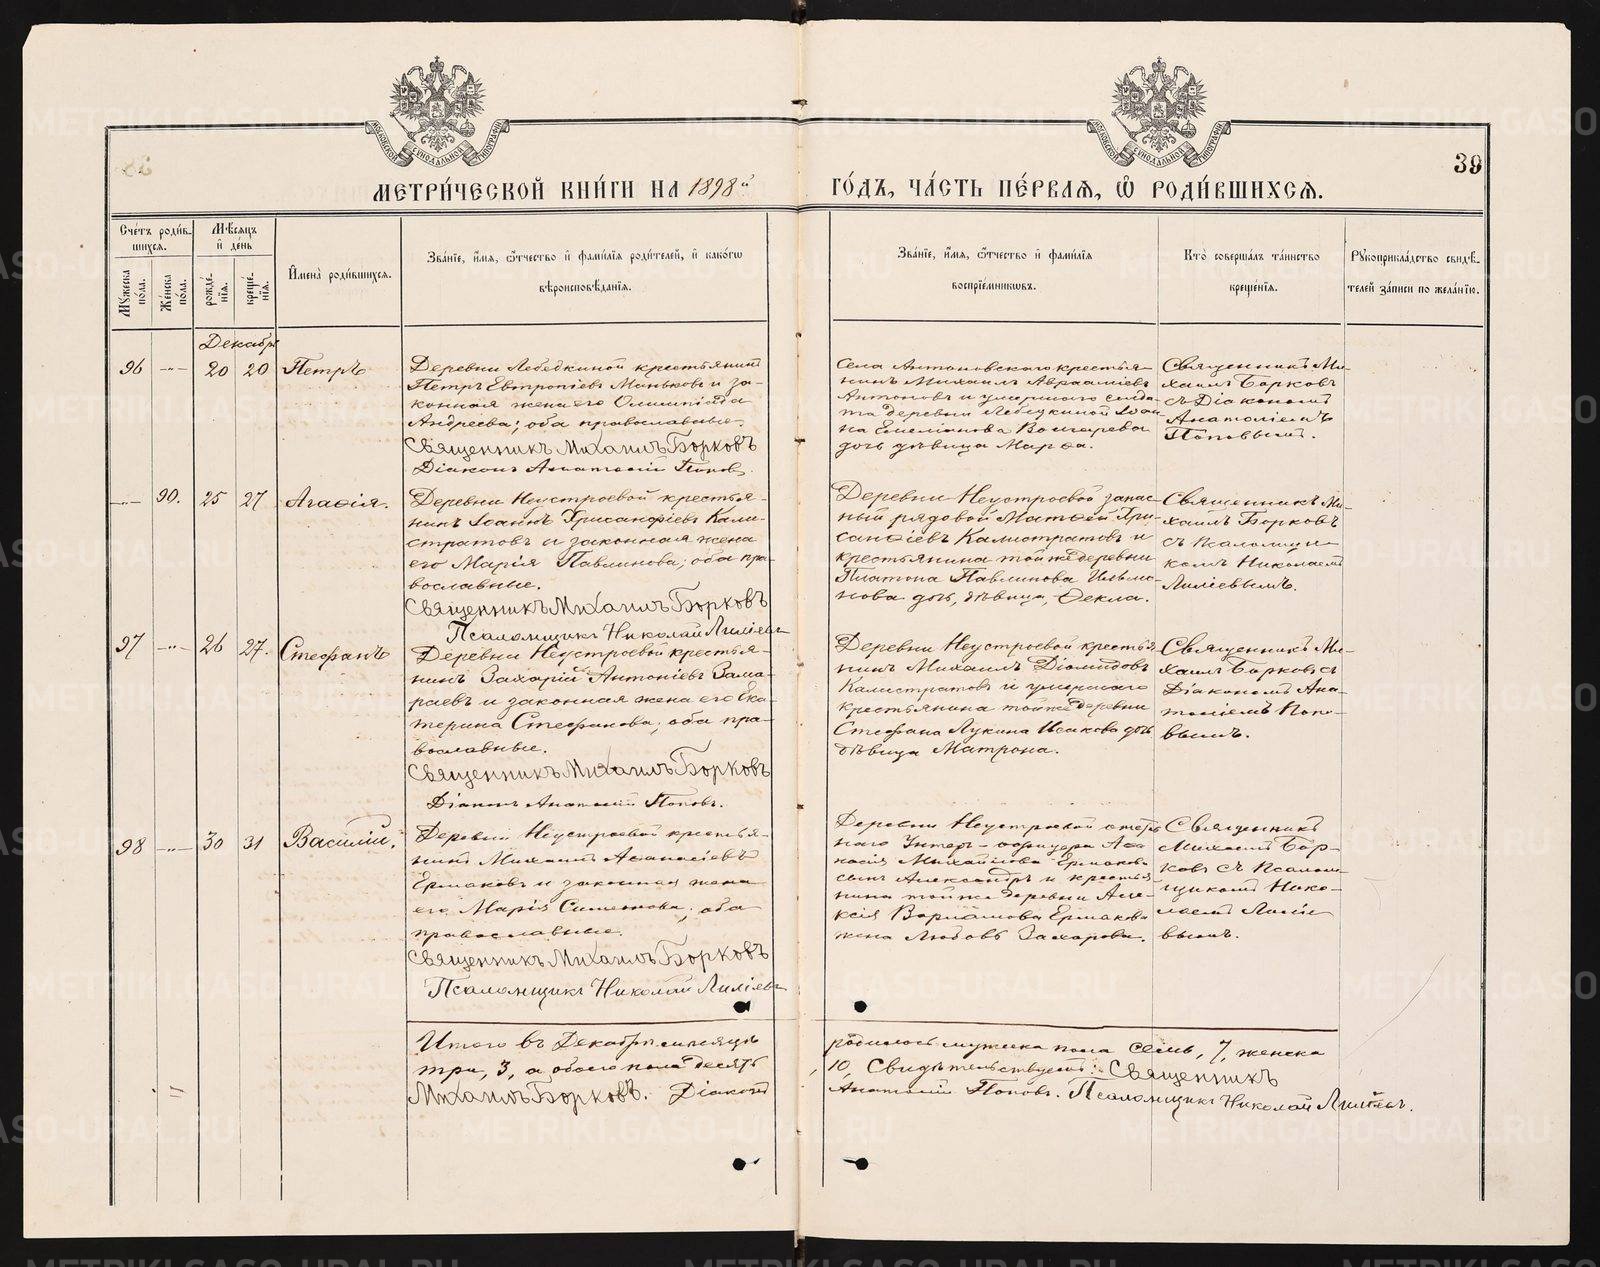 МЕТРИ́ЧЕСКОЙ КНИ́ГИ НА 1898й ГО́ДЪ, ЧА́СТЬ ПЕ́РВАЯ, Ѽ РОДИ́ВШИХСЯ.
39
Сче́тъ роди́в-
шихся.
Мужеска по́ла.
Же́нска по́ла.
Мѣсяцъ и҆ де́нь
рожде́нїя.
креще́нїя.
И҆мена̀ роди́вшихся.
Зва́нїе, и҆́мя, ѻ҆́тчество и҆ фами́лїя роди́телей, и҆ како́гѡ
вѣроисповѣ́данїя.
Зва́нїе, и҆́мя, ѻ҆́тчество и҆ фами́лїя
воспрїе́мниковъ.
Кто̀ соверша́лъ та́инство
креще́нїя.
Рукоприкла́дство свидѣ́-
телей за́писи по жела́нїю.
Декабрь
96 -"- 20 20 Петръ
Деревни Лебедкиной крестьянинъ
Петръ Евтропіевъ Маньковъ и за-
конная жена его Олимпіада
Андреева; оба православные.
Священникъ Михаилъ Борковъ
Діаконъ Анатолій Поповъ.
Села Антоновскаго крестья-
нинъ Михаилъ Авраамiевъ
Антоновъ и умершаго солда-
та деревни Лебедкиной Іоан-
на Емельянова
дочь дѣвица Марѳа.
Священникъ Ми-
хаилъ Борковъ
съ Діакономъ
Анатоліемъ
Поповымъ.
-"- 90. 25 27 Агаѳія.
Деревни Неустроевой крестья-
нинъ Іоаннъ Хрисанфіевъ Кали-
стратовъ и законная жена
его Марія Павлинова; оба пра-
вославные.
Священникъ Михаилъ Борковъ
Псаломщикъ Николай Лиліевъ
Деревни Неустроевой запас-
ный рядовой Матѳей Хри-
санѳіевъ Калистратовъ и
крестьянина той же деревни
Платона Павлинова Ильми-
нова дочь, дѣвица, Ѳекла.
Священникъ Ми-
хаилъ Борковъ
съ Псаломщи-
комъ Николаемъ
Лиліевымъ.
97 -"- 26 27. Стефанъ
Деревни Неустроевой крестья-
нинъ Захарій Антоніевъ Зама-
раевъ и законная жена его Ека-
терина Стефанова; оба пра-
вославные.
Священникъ Михаилъ Борковъ
Діаконъ Анатолій Поповъ.
Деревни Неустроевой крестья-
нинъ Михаилъ Діомидовъ
Калистратовъ и умершаго
крестьянина той же деревни
Стефана Лукина Исакова дочь
дѣвица Матрона.
Священникъ Ми-
хаилъ Борковъ съ
Діакономъ Ана-
толіемъ Попо-
вымъ.
98 -"- 30 31 Василій.
Деревни Неустроевой крестья-
нинъ Михаилъ Аѳанасіевъ
Ермаковъ и законная жена
его Марія Симеонова; оба
православные.
Священникъ Михаилъ Борковъ
Псаломщикъ Николай Лиліевъ
Деревни Неустроевой отстав-
наго Унтеръ-офицера Аѳа-
насія Михайлова Ермакова
сынъ Александръ и крестья-
нина той же деревни Але-
ксія Варлаамова Ермакова
жена Любовь Захарова.
Священникъ
Михаилъ Бор-
ковъ съ Псалом-
щикомъ Нико-
лаемъ Лиліе-
вымъ.
Итого въ Декабрѣ мѣсяцѣ родилось мужеска пола семь, 7, женска
три, 3, а обоего пола десять, 10, Свидѣтельствуемъ: Священникъ
Михаилъ Борковъ. Діаконъ Анатолій Поповъ. Псаломщикъ Николай Лиліевъ.
METRIKI.GASO-URAL.RU